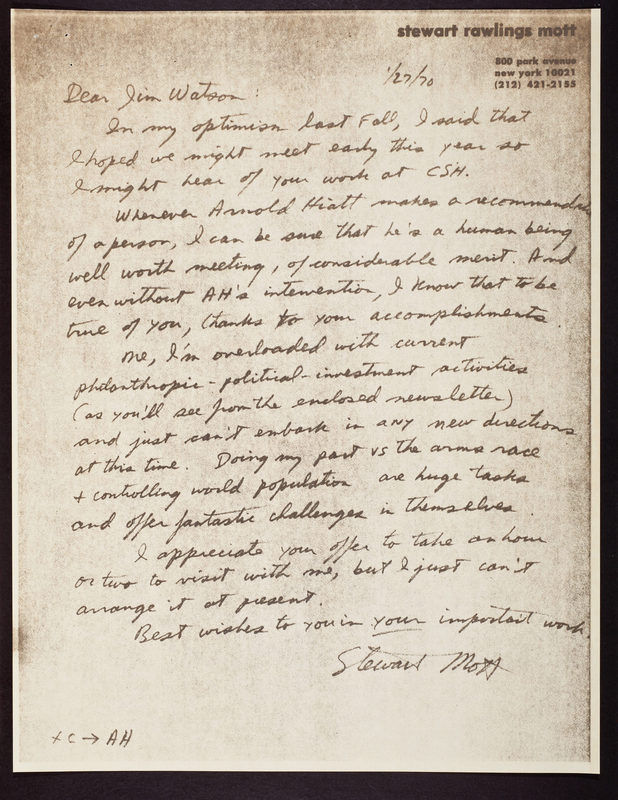 stewart rawlings mott
800 park avenue
new york 10021
(212) 421-2155
1/27/70
Dear Jim Watson:
In my optimism last Fall, I said that
I hoped we might meet early this year so
I might hear of your work at CSH.
Whenever Arnold Hiatt makes a recommendatn
of a person, I can be sure that he's a human being
well worth meeting, of considerable merit. And
even without AH's intervention, I know that to be
true of you, thanks to your accomplishments.
Me, I'm overloaded with current
philanthropic-political-investment activities
(as you'll see from the enclosed newsletter)
and just can't embark in any new directions
at this time. Doing my part vs the arms race
+ controlling world population are huge tasks
and offer fantastic challenges in themselves.
I appreciate your offer to take an hour
or two to visit with me, but I just can't
arrange it at present.
Best wishes to you in your important work.
Stewart Mott
xc → AH